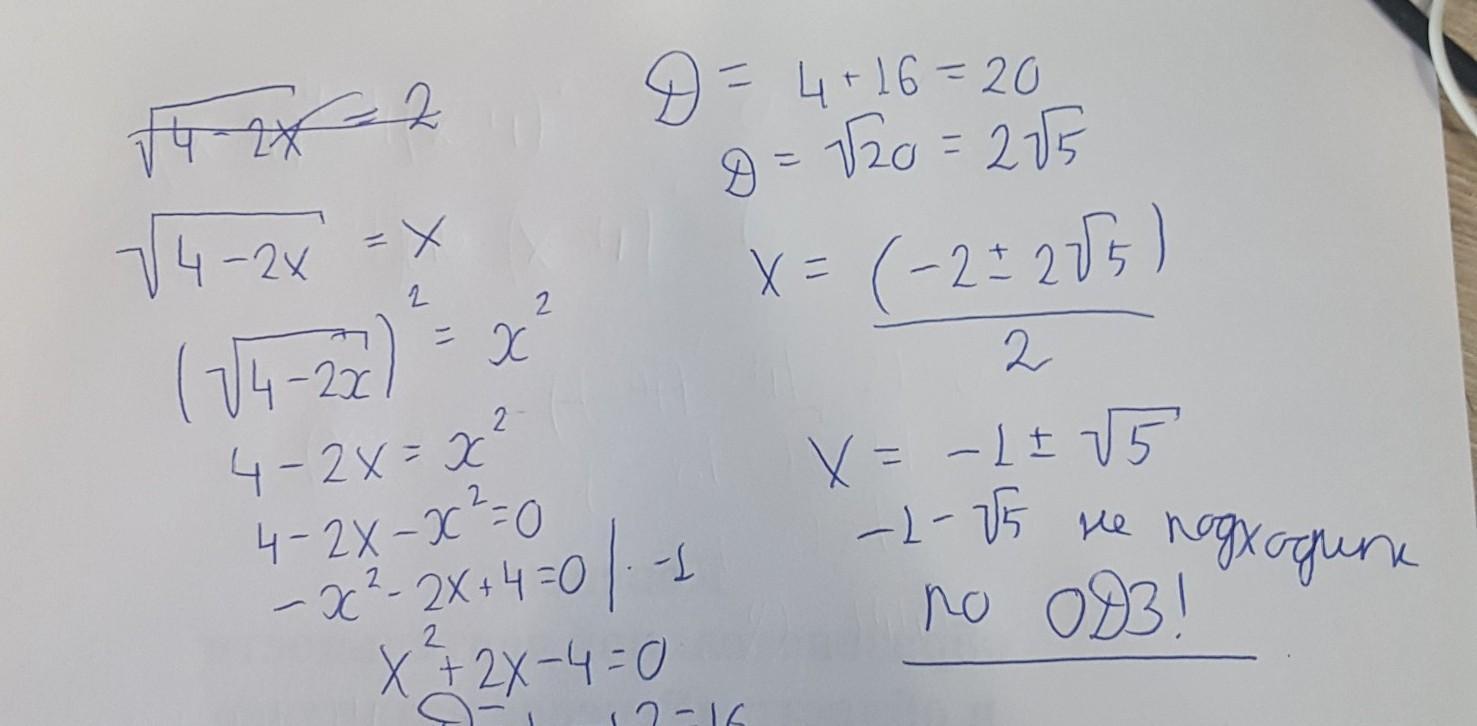 √4-2x = 2
√4-2x = x
(√4-2x)² = x²
4-2x = x²
4-2x-x²=0
-x²-2x+4=0 | · -1
x²+2x-4=0
D = 4+16=20
D = √20 = 2√5
x = (-2±2√5)
2
x = -1±√5
-1-√5 не подходит
по ОДЗ!